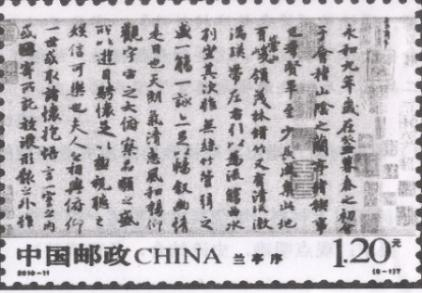 永和九年歲在癸丑暮春之初會
于會稽山陰之蘭亭脩稧事
也羣賢畢至少長咸集此地
有崇山峻領茂林脩竹又有清流激
湍暎帶左右引以為流觴曲水
列坐其次雖無絲竹管弦之
盛一觴一詠亦足以暢敘幽情
是日也天朗氣清惠風和暢仰
觀宇宙之大俯察品類之盛
所以遊目騁懷足以極視聽之
娛信可樂也夫人之相與俯仰
一世或取諸懷抱悟言一室之內
或因寄所託放浪形骸之外雖
中国邮政 CHINA 兰亭序 1.20元
2010-11